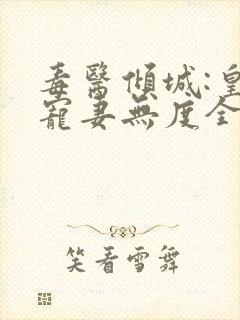 毒醫傾城:皇
寵妻無度全
笑看雪舞